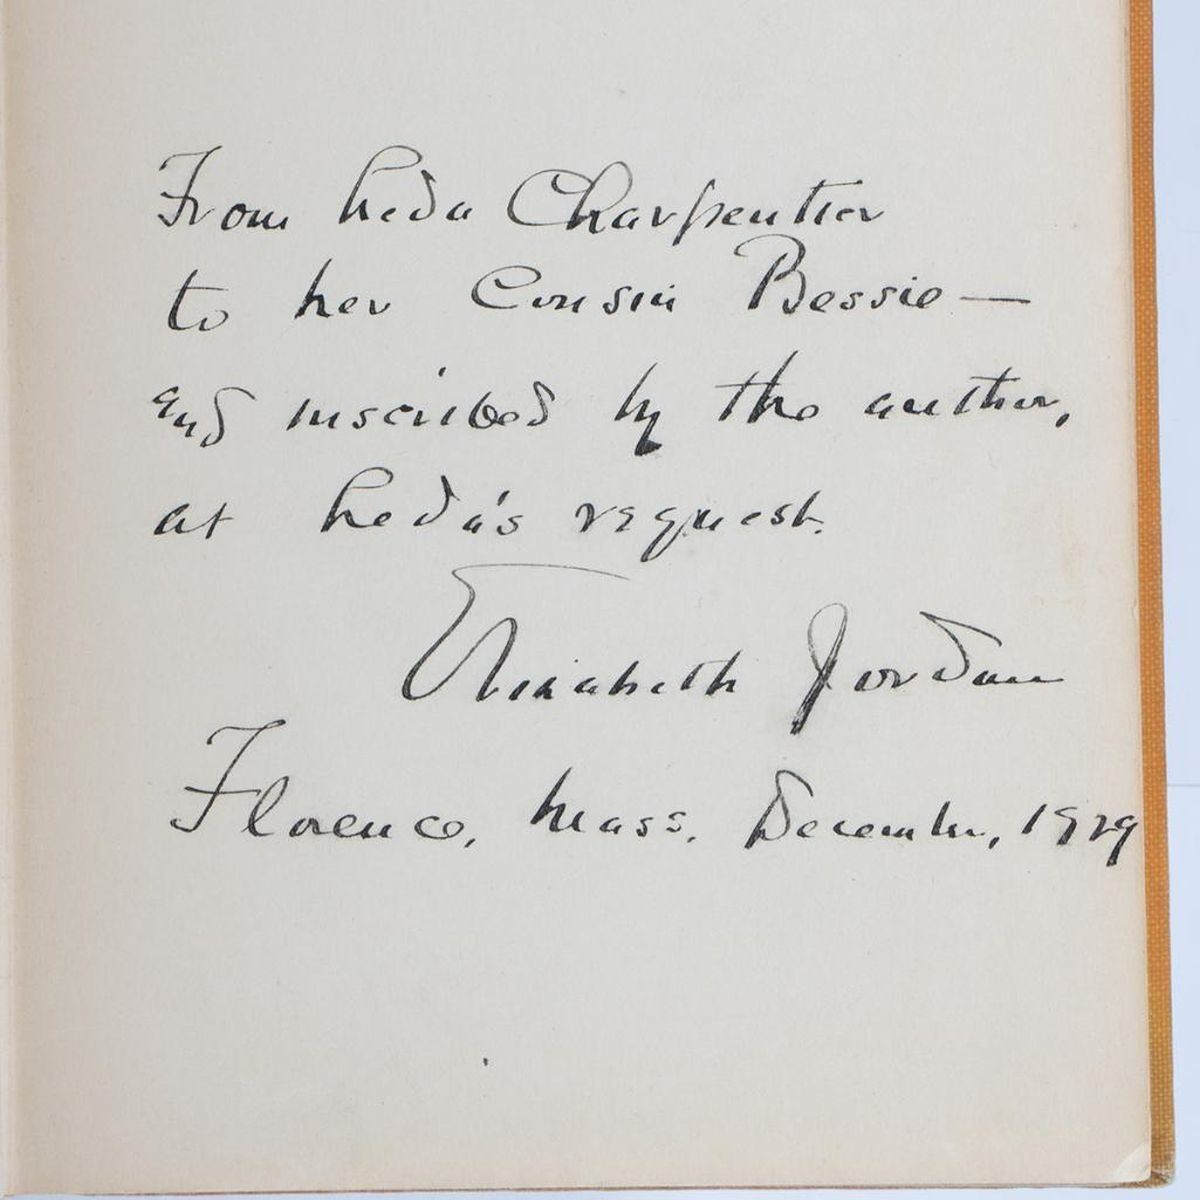 From Leda Charpentier
to her Cousin Bessie—
and inscribed by the author,
at Leda's request.
Elizabeth Jordan
Florence, Mass. December, 1929